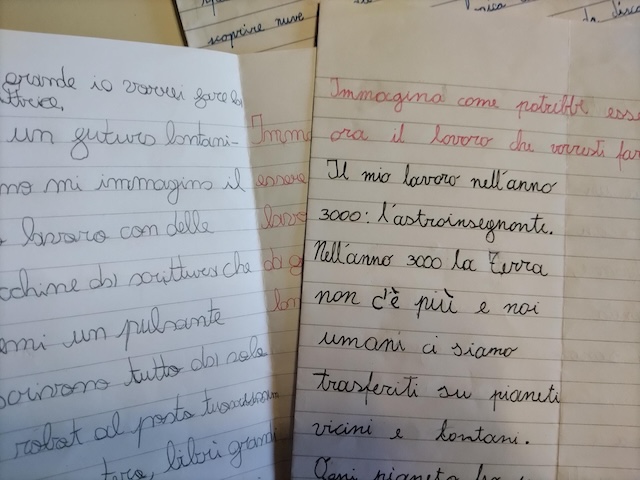 scoprire nuve
grande io vorrei fare la
un futuro lontani-
mo mi immagino il
lavoro con delle
scrittura che
un pulsante
scrivono tutto da sole
robot al posto
libri grandi
Imma
essere
lavo
da g
lon
Immagina come potrebbe esse
ora il lavoro che vorresti far
Il mio lavoro nell'anno
3000: l'astroinsegnante.
Nell'anno 3000 la Terra
non c'è più e noi
umani ci siamo
trasferiti su pianeti
vicini e lontani.
Ogni pianeta ha